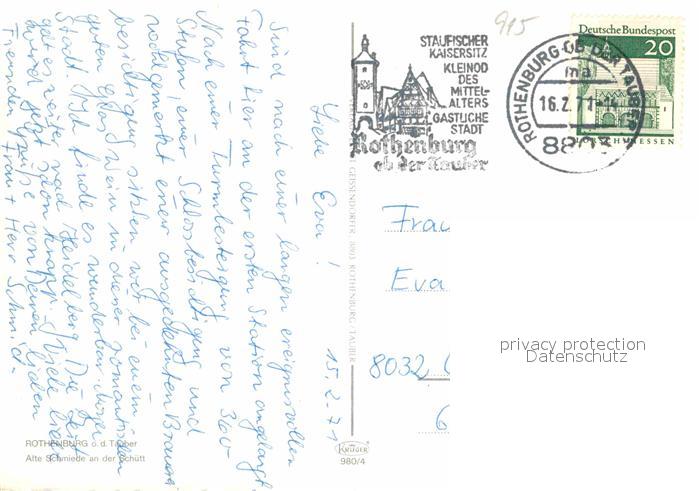 915
STAUFISCHER
KAISERSITZ
KLEINOD
DES
MITTEL-
ALTERS
GASTLICHE
STADT
Rothenburg
ob der Tauber
Deutsche Bundespost
20
LORSCH/HESSEN
ROTHENBURG OB DER TAUBER
mb
16.2.71-14
8803
15.2.71
Liebe Eva!
Sind nach einer langen ereignisvollen
Fahrt hier an der ersten Station angelangt.
Nach einer Turmbesteigung von 360
Stufen, einer Schlossbesichtigung und
wohlgemerkt einer ausgedehnten
besichtigung sitzen wir bei einem
guten Glas Wein in dieser romantischen
Stadt. Ich finde es wunderbar. Morgen
geht es weiter nach Heidelberg. Die Zeit
wird jetzt schon knapp. Viele liebe
Grüße von Deinen lieben
Frau + Herr Schmid
GEISSENDÖRFER 8803 ROTHENBURG TAUBER
Frau
Eva
8032
privacy protection
Datenschutz
ROTHENBURG o.d. Tauber
Alte Schmiede an der Schütt
KRÜGER
980/4